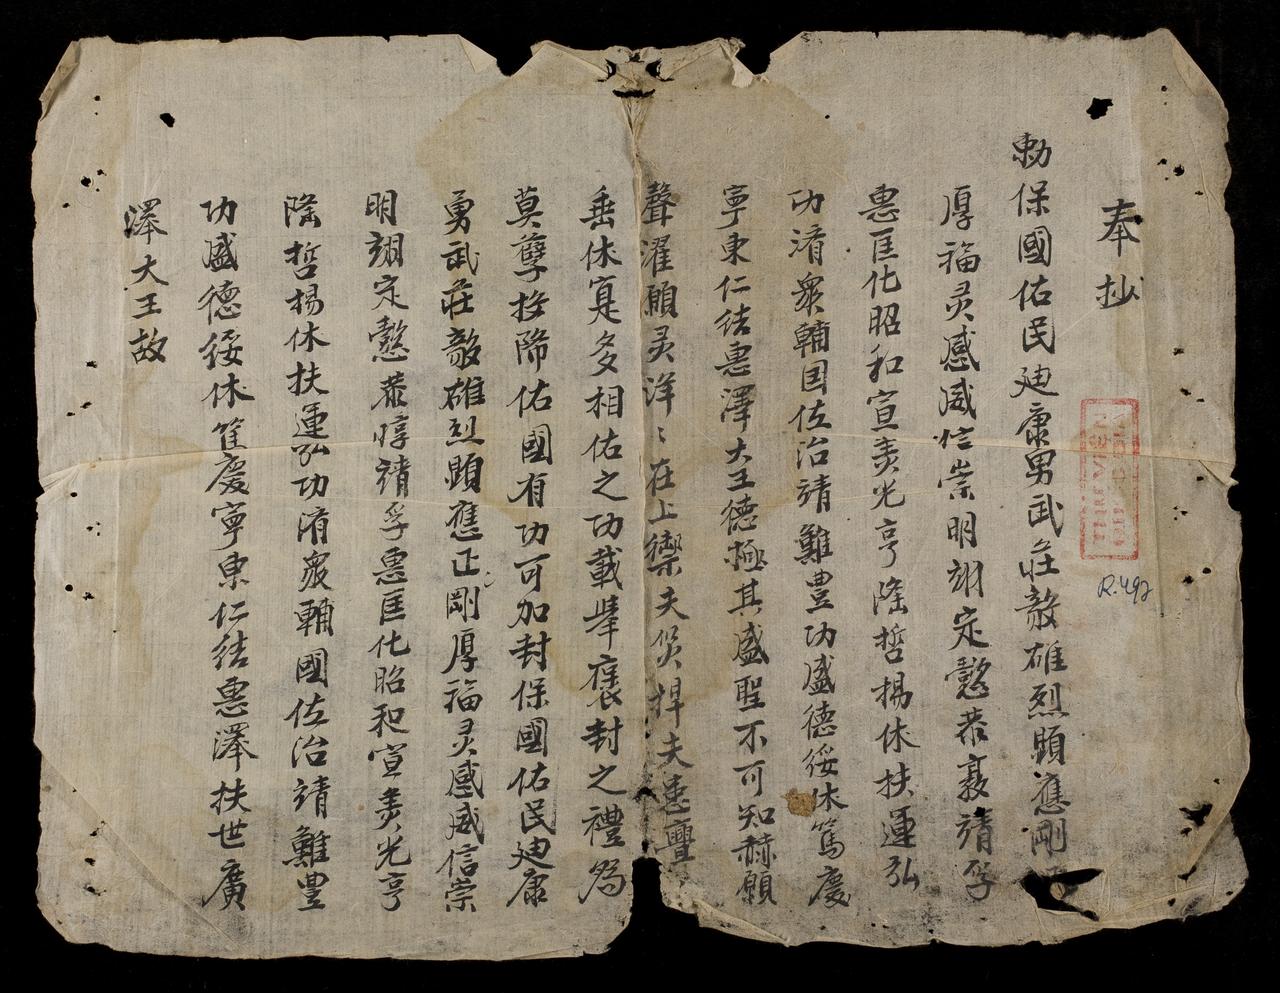 奉抄
勅保國佑民廸康勇武莊毅雄烈顕應剛
厚福灵感威信崇明翊定懿恭襄靖孚
惠匡化昭和宣美光亨隆哲揚休扶運弘
功濟衆輔国佐治靖難豊功盛德綏休篤慶
寧東仁结惠澤大王德極其盛聖不可知赫顧
聲濯顧灵洋〻在上禦夫災捍夫患亹
垂休寔多相佑之功載舉褒封之禮為
莫孽按降佑國有功可加封保國佑民廸康
勇武莊毅雄烈顕應正剛厚福灵感威信崇
明翊定懿恭惇靖孚惠匡化昭和宣美光亨
隆哲揚休扶運弘功濟衆輔國佐治靖難豊
功盛德綏休篤慶寧東仁结惠澤扶世廣
澤大王故
R.492